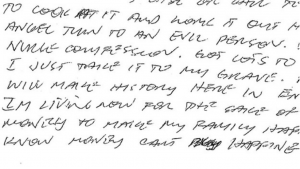 TO LOOK AT IT AND WORK IT OUT
ANGEL TURN TO AN EVIL PERSON.
NURSE CONFESSION. GOT LOTS TO
I JUST TAKE IT TO MY GRAVE.
WILL MAKE HISTORY HERE IN
I'M LIVING NOW FOR THE SAKE OF
MONEY TO MAKE MY FAMILY HAP
KNOW MONEY CAN'T BUY HAPPINE